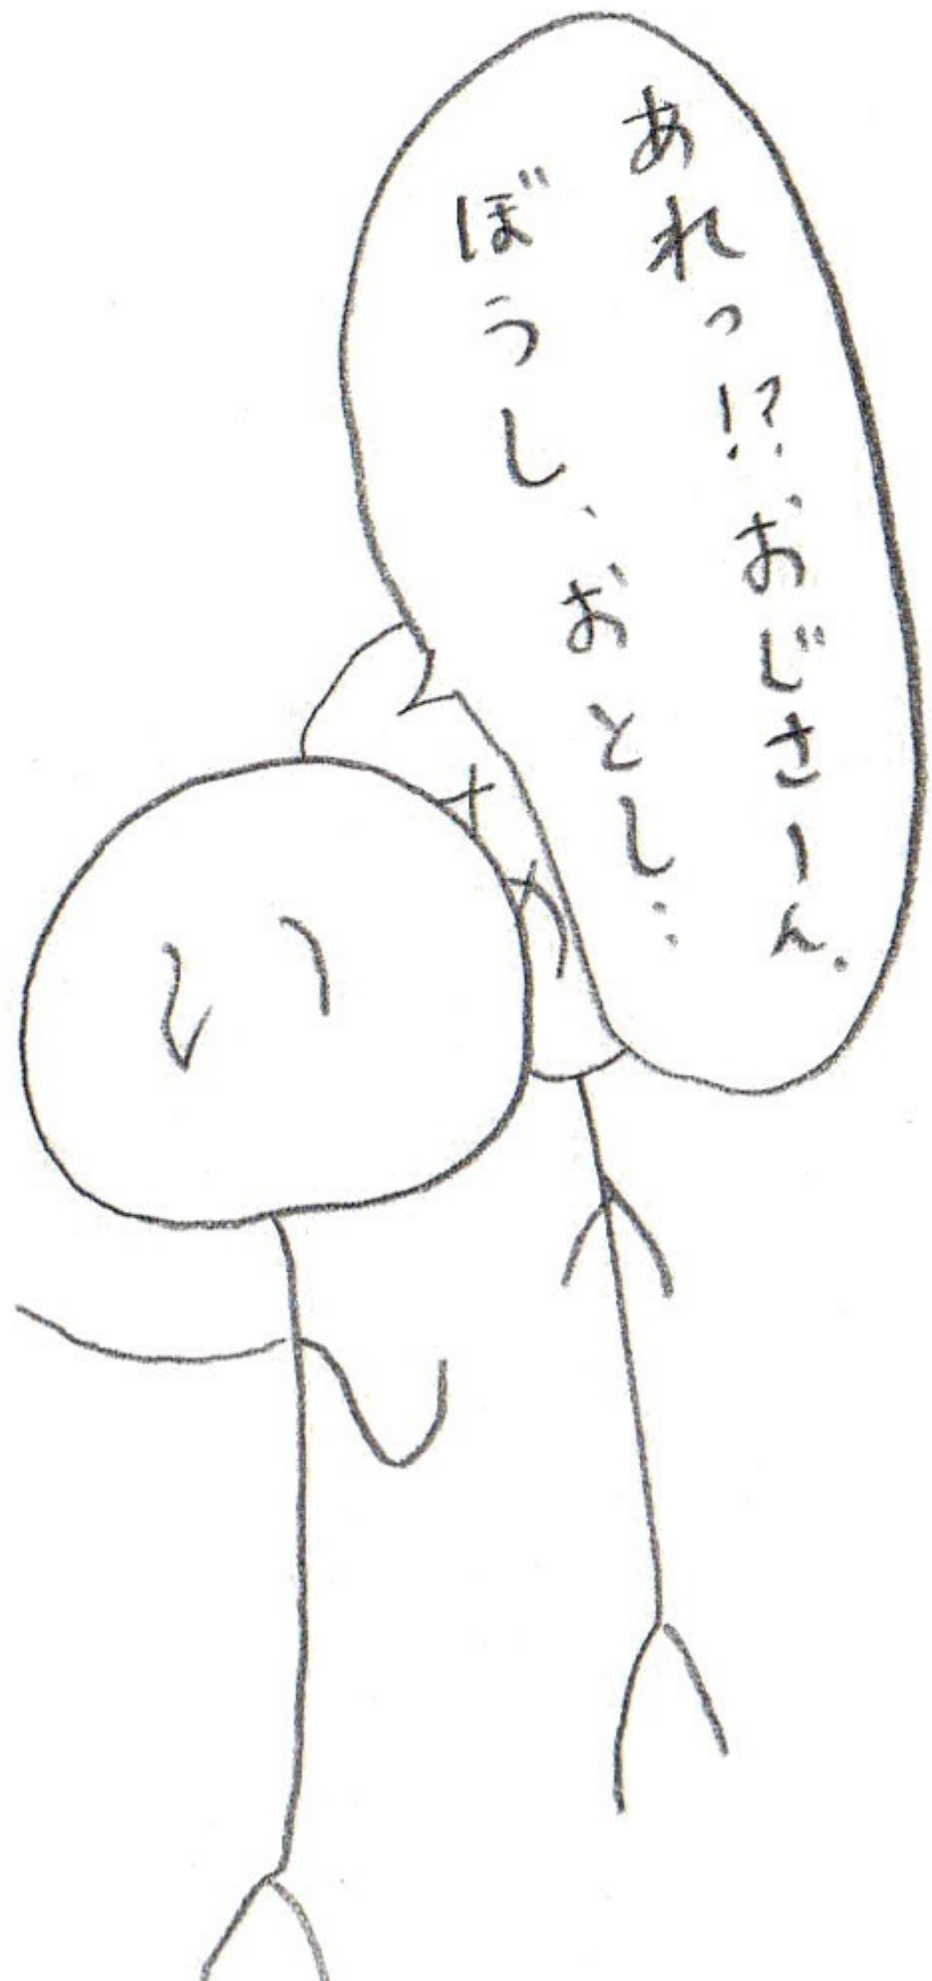 あれっ!?おじさーん.
ぼうし、おとし..